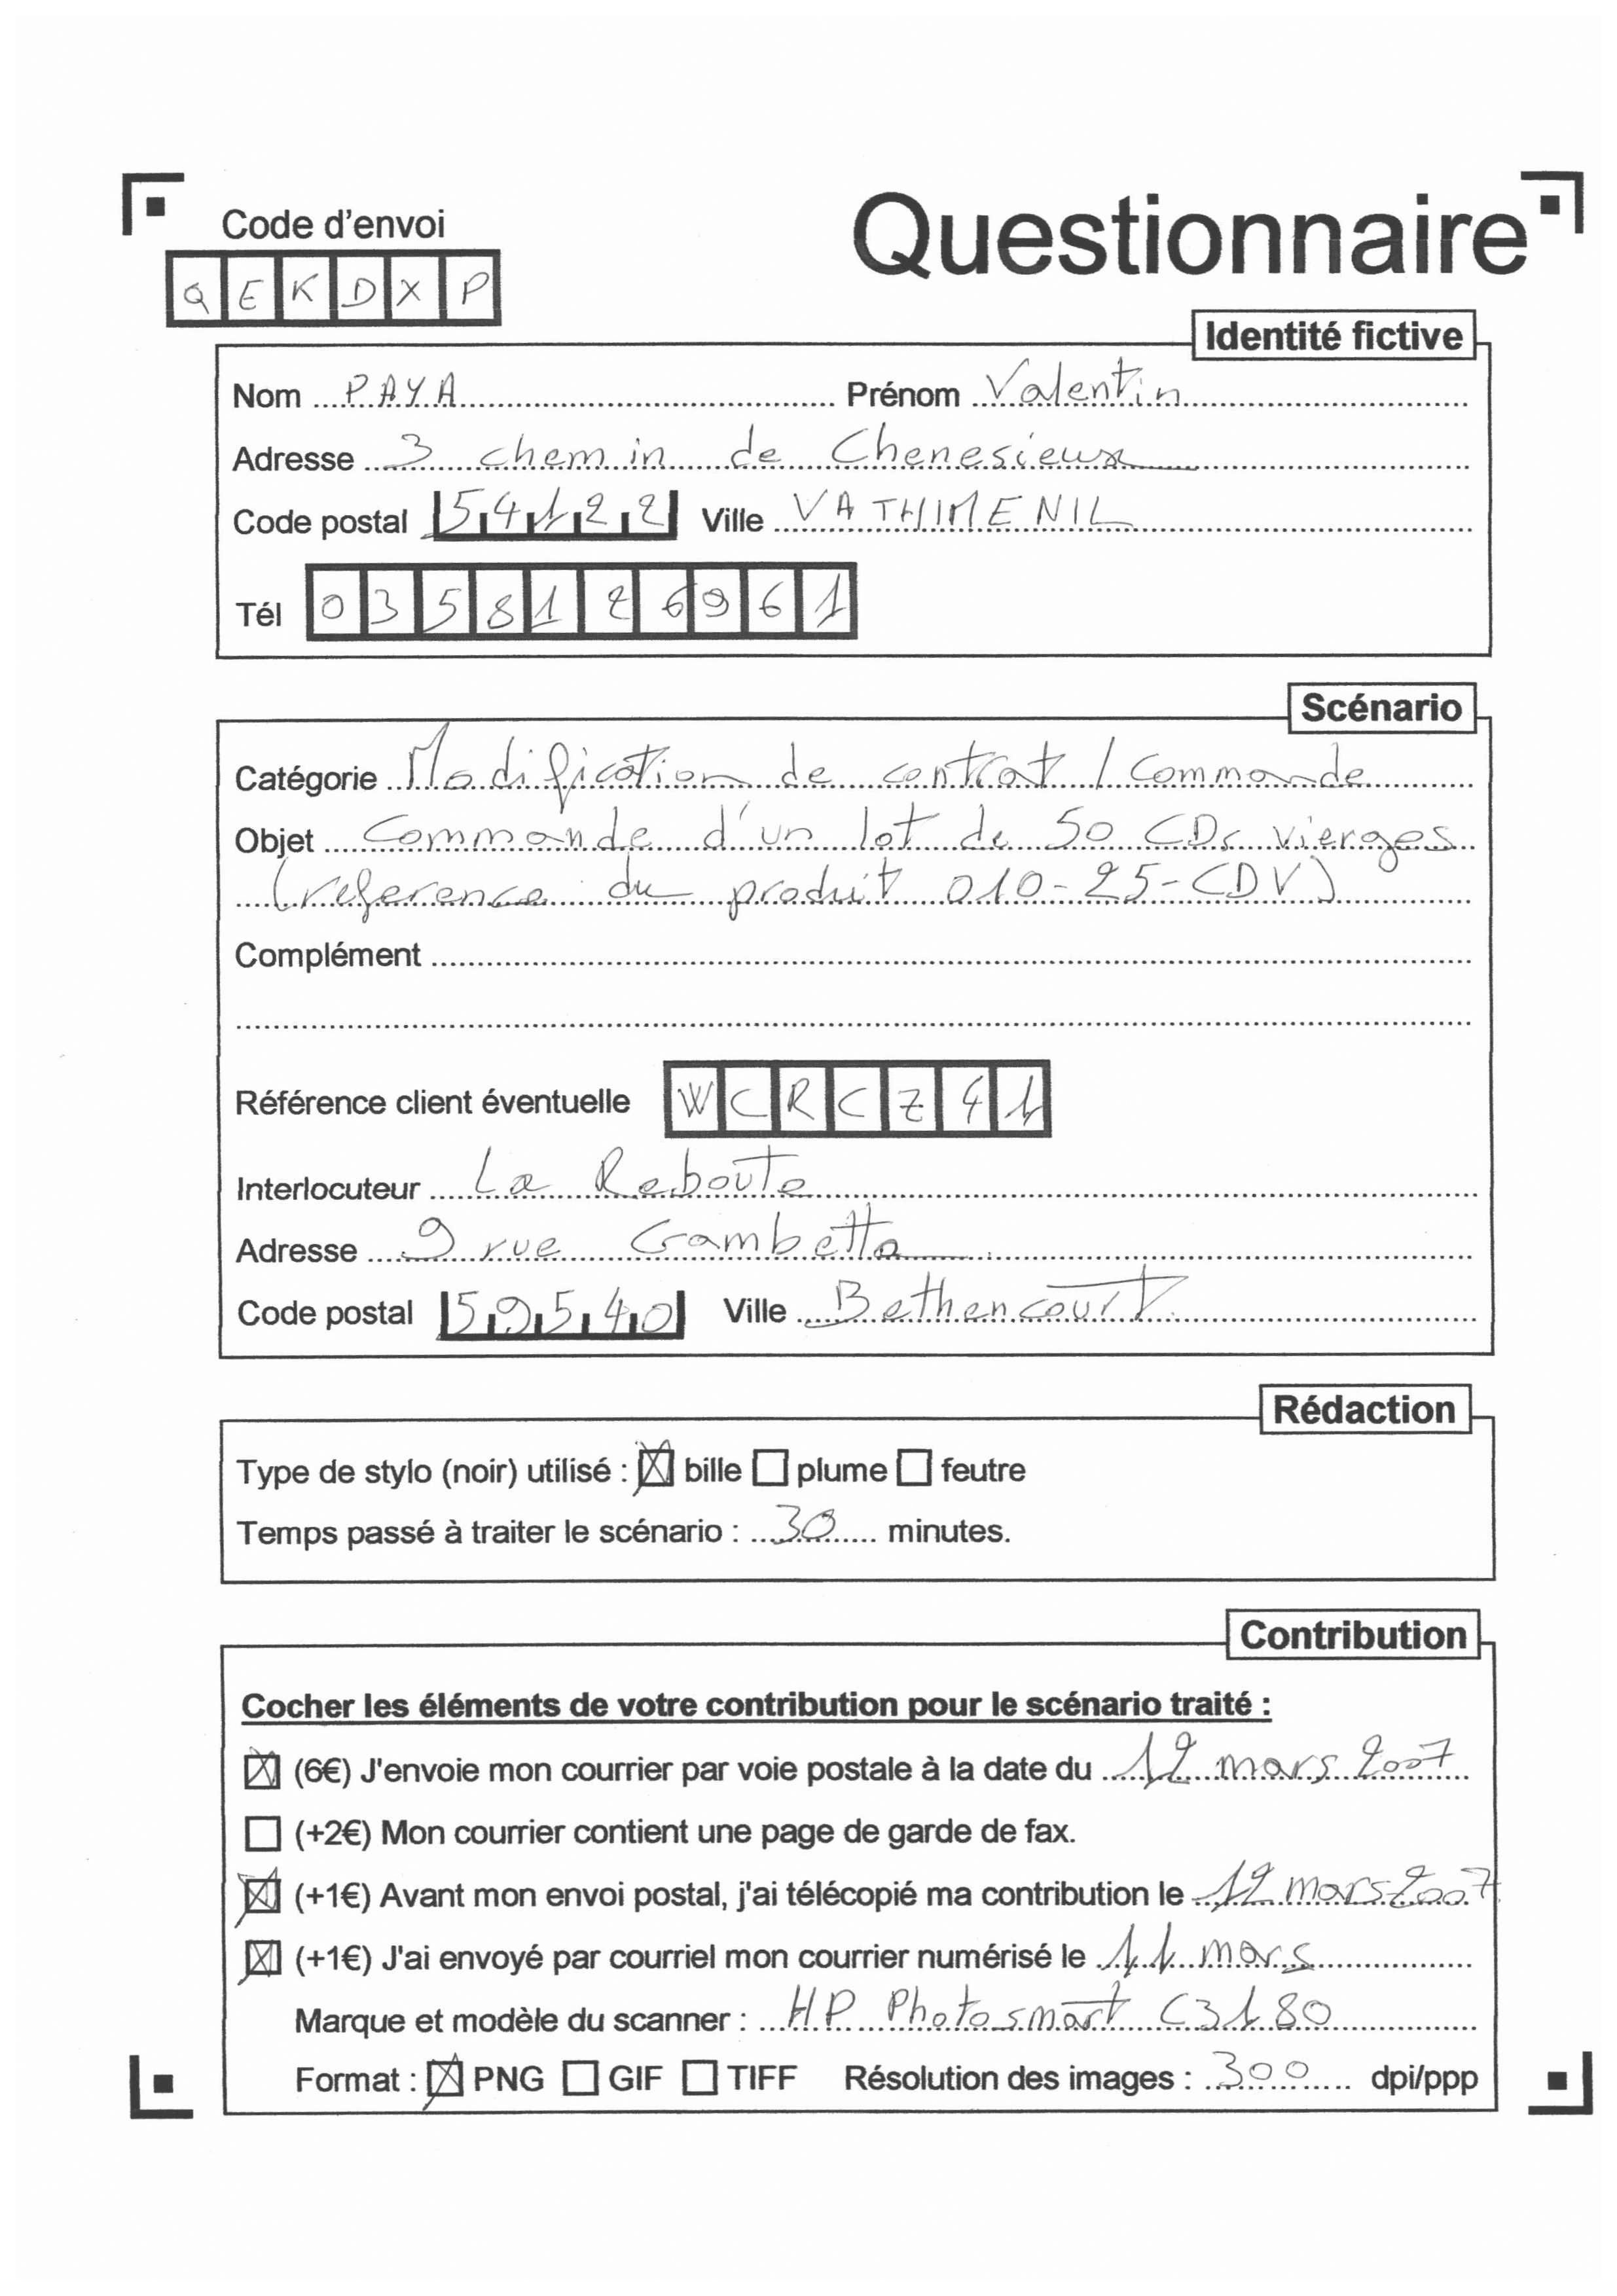 Code d'envoi
Questionnaire
QEKDXP
Identité fictive
Nom PAYA Prénom Valentin
Adresse 3 chemin de Chenesieux
Code postal 54122 Ville VATHIMENIL
Tél 0358126961
Scénario
Catégorie Modification de contrat / Commande
Objet Commande d'un lot de 50 CDs vierges
(reference du produit 010-25-CDV)
Complément
Référence client éventuelle WCRCZ41
Interlocuteur La Reboute
Adresse 9 rue Gambetta
Code postal 59540 Ville Bethencourt
Rédaction
Type de stylo (noir) utilisé : bille plume feutre
Temps passé à traiter le scénario : 30 minutes.
Contribution
Cocher les éléments de votre contribution pour le scénario traité :
(6€) J'envoie mon courrier par voie postale à la date du 12 mars 2007
(+2€) Mon courrier contient une page de garde de fax.
(+1€) Avant mon envoi postal, j'ai télécopié ma contribution le 12 mars 2007
(+1€) J'ai envoyé par courriel mon courrier numérisé le 11 mars
Marque et modèle du scanner : HP Photosmart C3180
Format : PNG GIF TIFF Résolution des images : 300 dpi/ppp